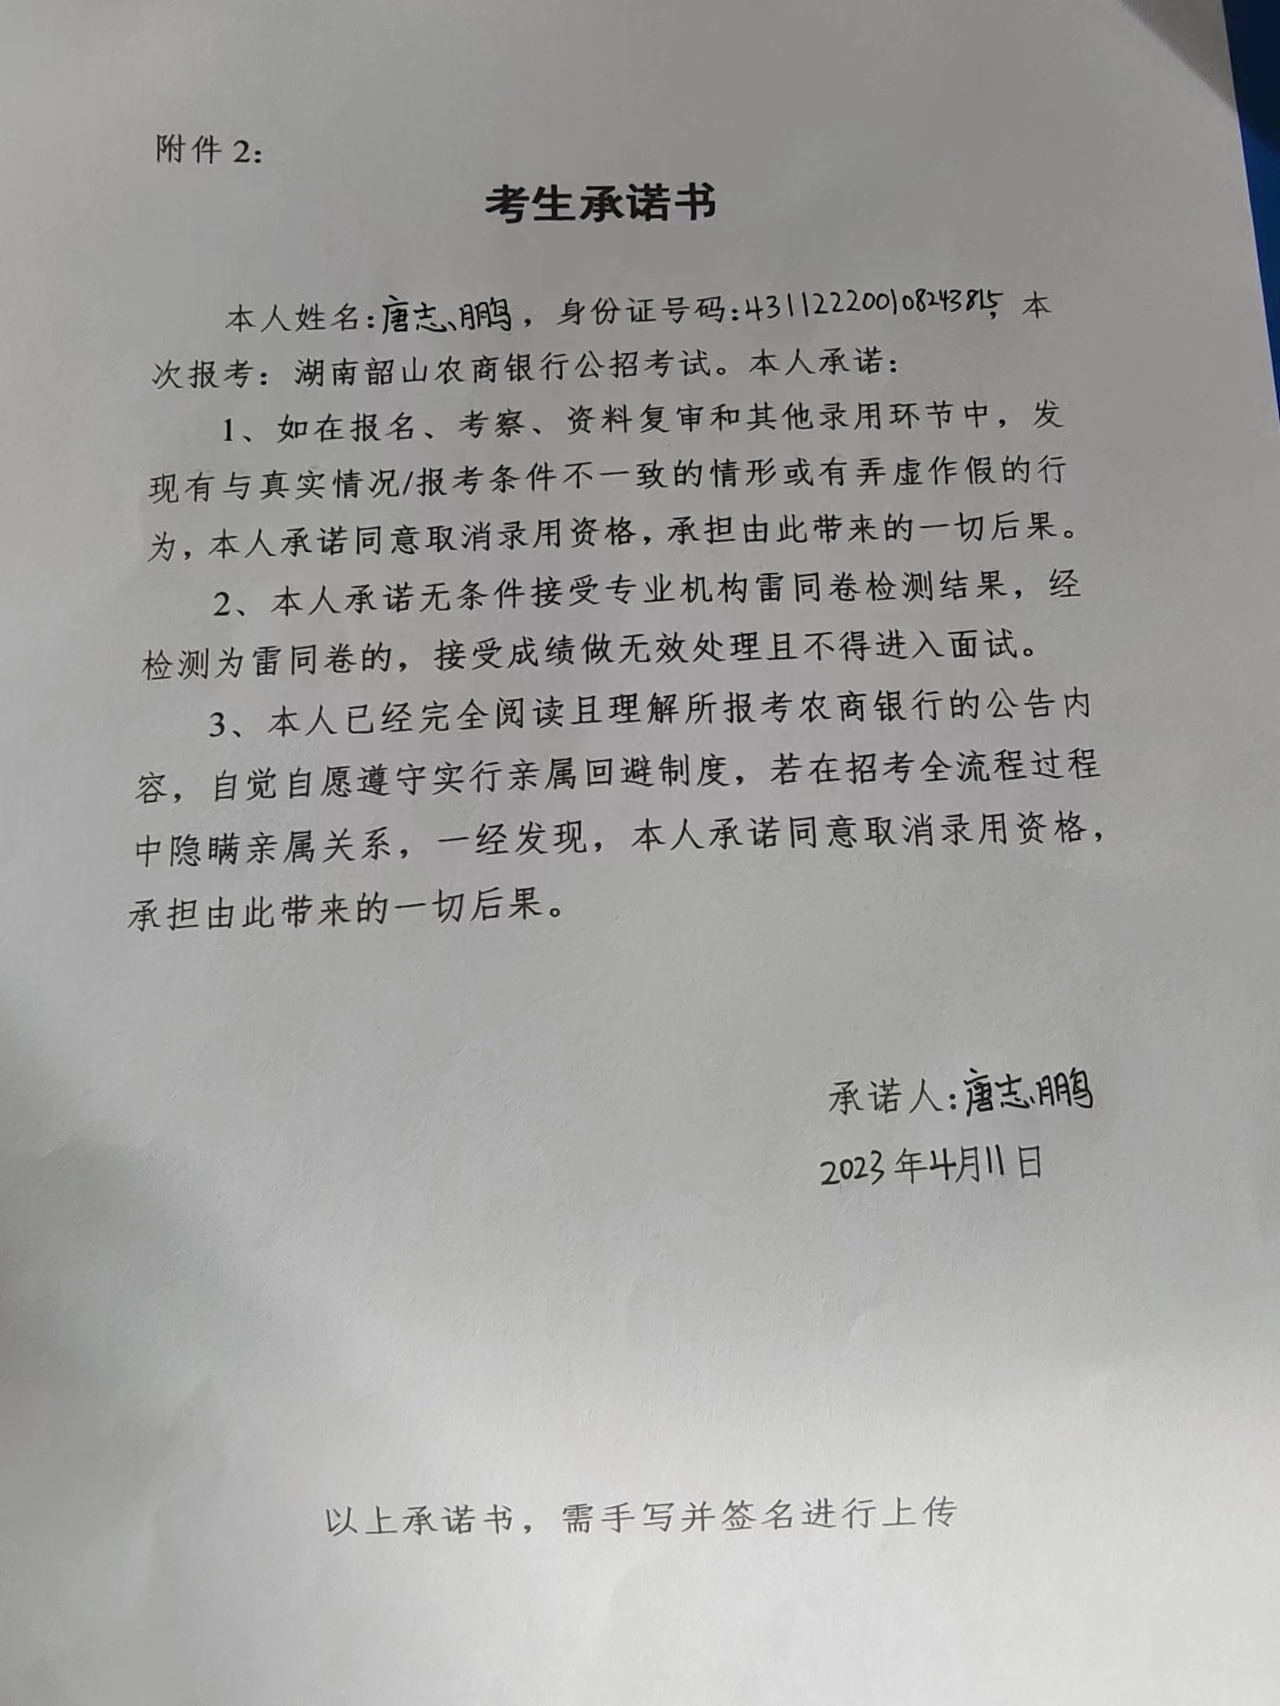 附件 2：
考生承诺书
本人姓名：唐志鹏，身份证号码：431122200108243815，本
次报考：湖南韶山农商银行公招考试。本人承诺：
1、如在报名、考察、资料复审和其他录用环节中，发
现有与真实情况/报考条件不一致的情形或有弄虚作假的行
为，本人承诺同意取消录用资格，承担由此带来的一切后果。
2、本人承诺无条件接受专业机构雷同卷检测结果，经
检测为雷同卷的，接受成绩做无效处理且不得进入面试。
3、本人已经完全阅读且理解所报考农商银行的公告内
容，自觉自愿遵守实行亲属回避制度，若在招考全流程过程
中隐瞒亲属关系，一经发现，本人承诺同意取消录用资格，
承担由此带来的一切后果。
承诺人：唐志鹏
2023年4月11日
以上承诺书，需手写并签名进行上传